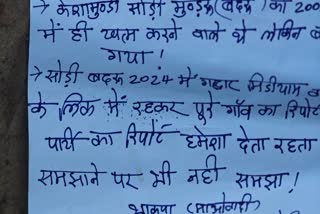 केशामुण्डी सोड़ी मुण्डक (बदरू) का 200
में ही खत्म करने वाले थे लेकिन ब
गया!
→ सोड़ी बदरू 2024 में गद्दार मिडीयाम
के लिंक में रहकर पूरे गाँव का रिपोर्ट
पार्टी का रिपोर्ट हमेशा देता रहता
समझाने पर भी नहीं समझा!
भाकपा (माओवादी)